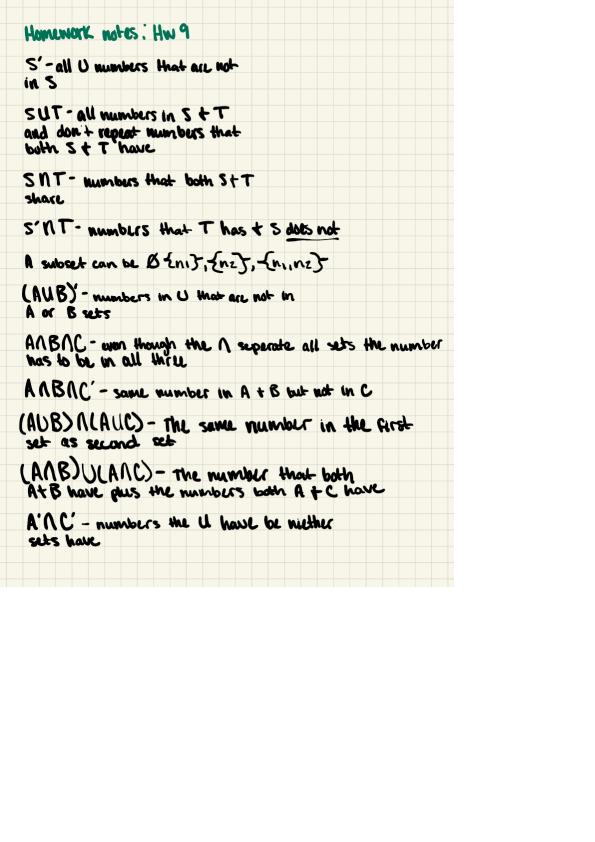 Homework notes: Hw 9
S' - all U numbers that are not
in S
SUT - all numbers in S + T
and don't repeat numbers that
both S + T have
S∩T - numbers that both S+T
share
S'∩T - numbers that T has + S does not
A subset can be Ø {n1},{n2},{n1,n2}
(AUB)' - numbers in U that are not in
A or B sets
A∩B∩C - even though the ∩ seperate all sets the number
has to be in all three
A∩B∩C' - same number in A + B but not in C
(AUB)∩(AUC) - The same number in the first
set as second set
(A∩B)U(A∩C) - The number that both
A+B have plus the numbers both A + C have
A'∩C' - numbers the U have be niether
sets have